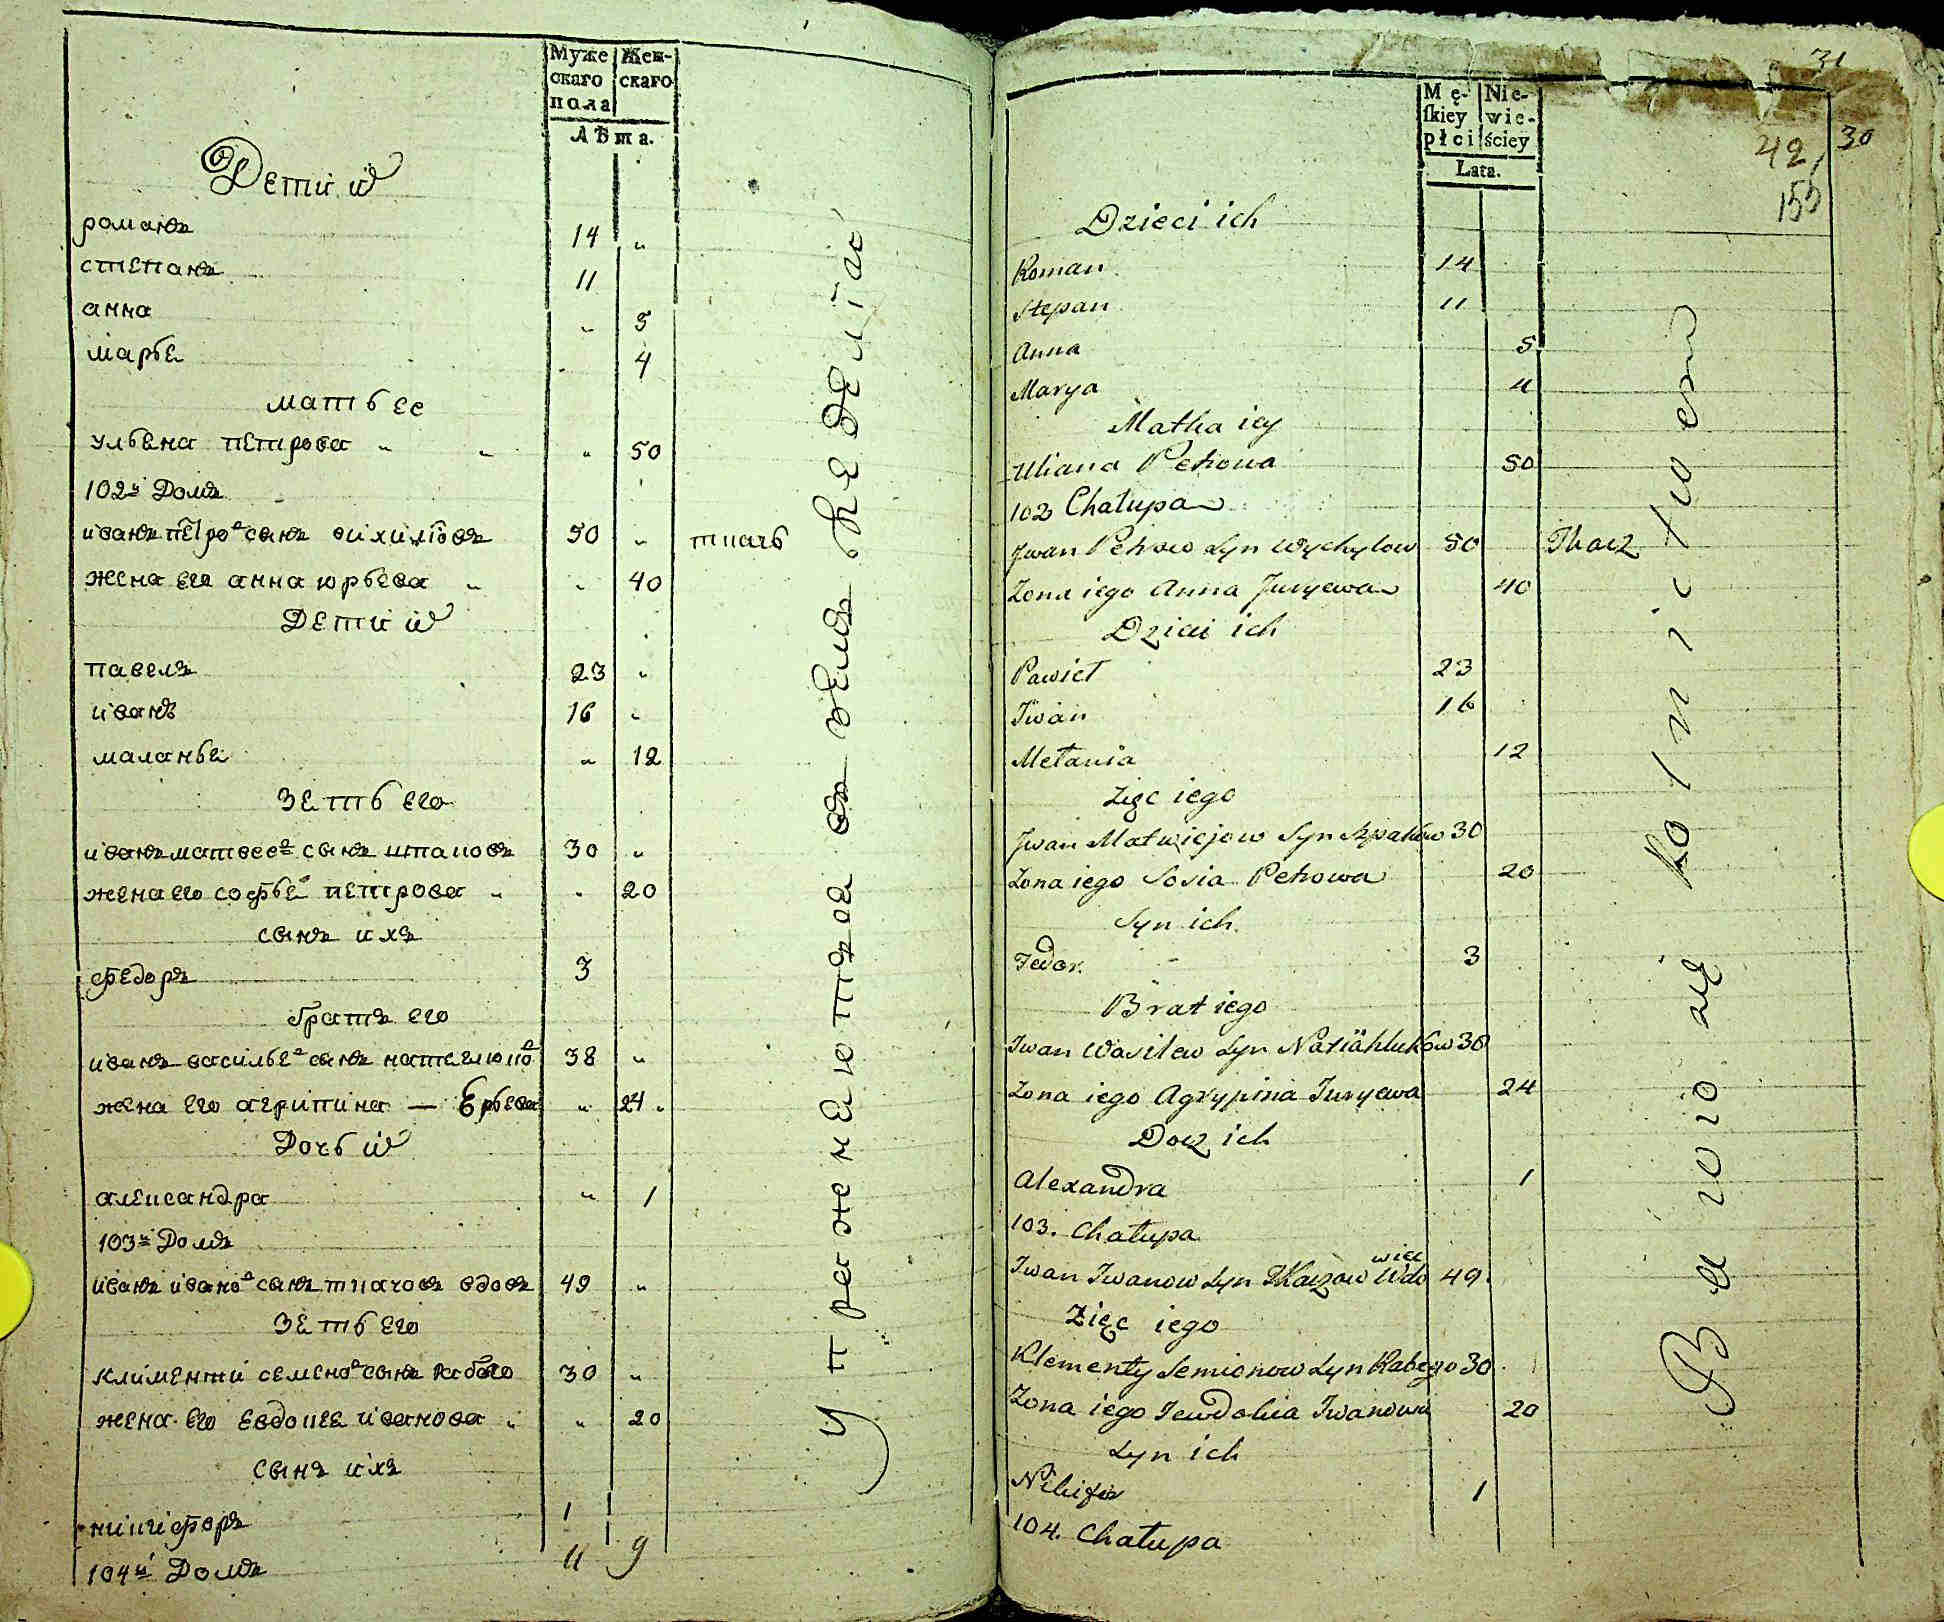 Муже
скаго
пола
Жен-
скаго
Лѣта.
Дети их
романъ 14 „
степанъ 11
анна „ 5
марье 4
мать ее
ульена петрова „ „ „ 50
102й Домъ
иванъ петро в сынъ вихиловъ 50 „ ткачь
жена его анна юрьева „ „ 40
Дети их
павелъ 23 „
иванъ 16 „
маланье „ 12
зеть его
иванъ матвеев сынъ шпаковъ 30 „
жена его софье петрова „ „ 20
сынъ ихъ
федоръ 3
братъ его
иванъ василье в сынъ 38 „
жена его агрипина — Ерьева „ 24 „
Дочь их
александра „ 1
103й Домъ
иванъ ивано в сынъ ткачовъ вдовъ 49 „
зеть его
климентий семено в сынъ рабого 30 „
жена его евдокее иванова „ „ 20
сынъ ихъ
никифоръ 1
104й Домъ 11 9
Упражнеютъца въ земле
31
Mę-
skiey
płci
Nie-
wie-
ściey
Lata.
42 30
155
Dzieci ich
Roman 14
Stepan 11
Anna 5
Marya 4
Matka iey
Uliana Petrowa 50
102 Chałupa
Jwan Petrow Syn Wychylow 50 Tkacz
Zona iego Anna Juryewa 40
Dzieci ich
Pawieł 23
Iwan 16
Mełania 12
Zięc iego
Jwan Matwiejow Syn Szpaków 30
Zona iego Sosia Petrowa 20
Syn ich
Fedor. 3
Brat iego
Iwan Wasilew Syn 38
Zona iego Agrypina Juryewa 24
Docz ich
Alexandra 1
103. Chałupa
Iwan Iwanow Syn Tkaczow Wdowiec 49.
Zięc iego
Klementy Semionow Syn Rabego 30
Zona iego Jewdokia Iwanowa 20
Syn ich
Nikifor 1
104. Chałupa
Bawio się rolnictwem